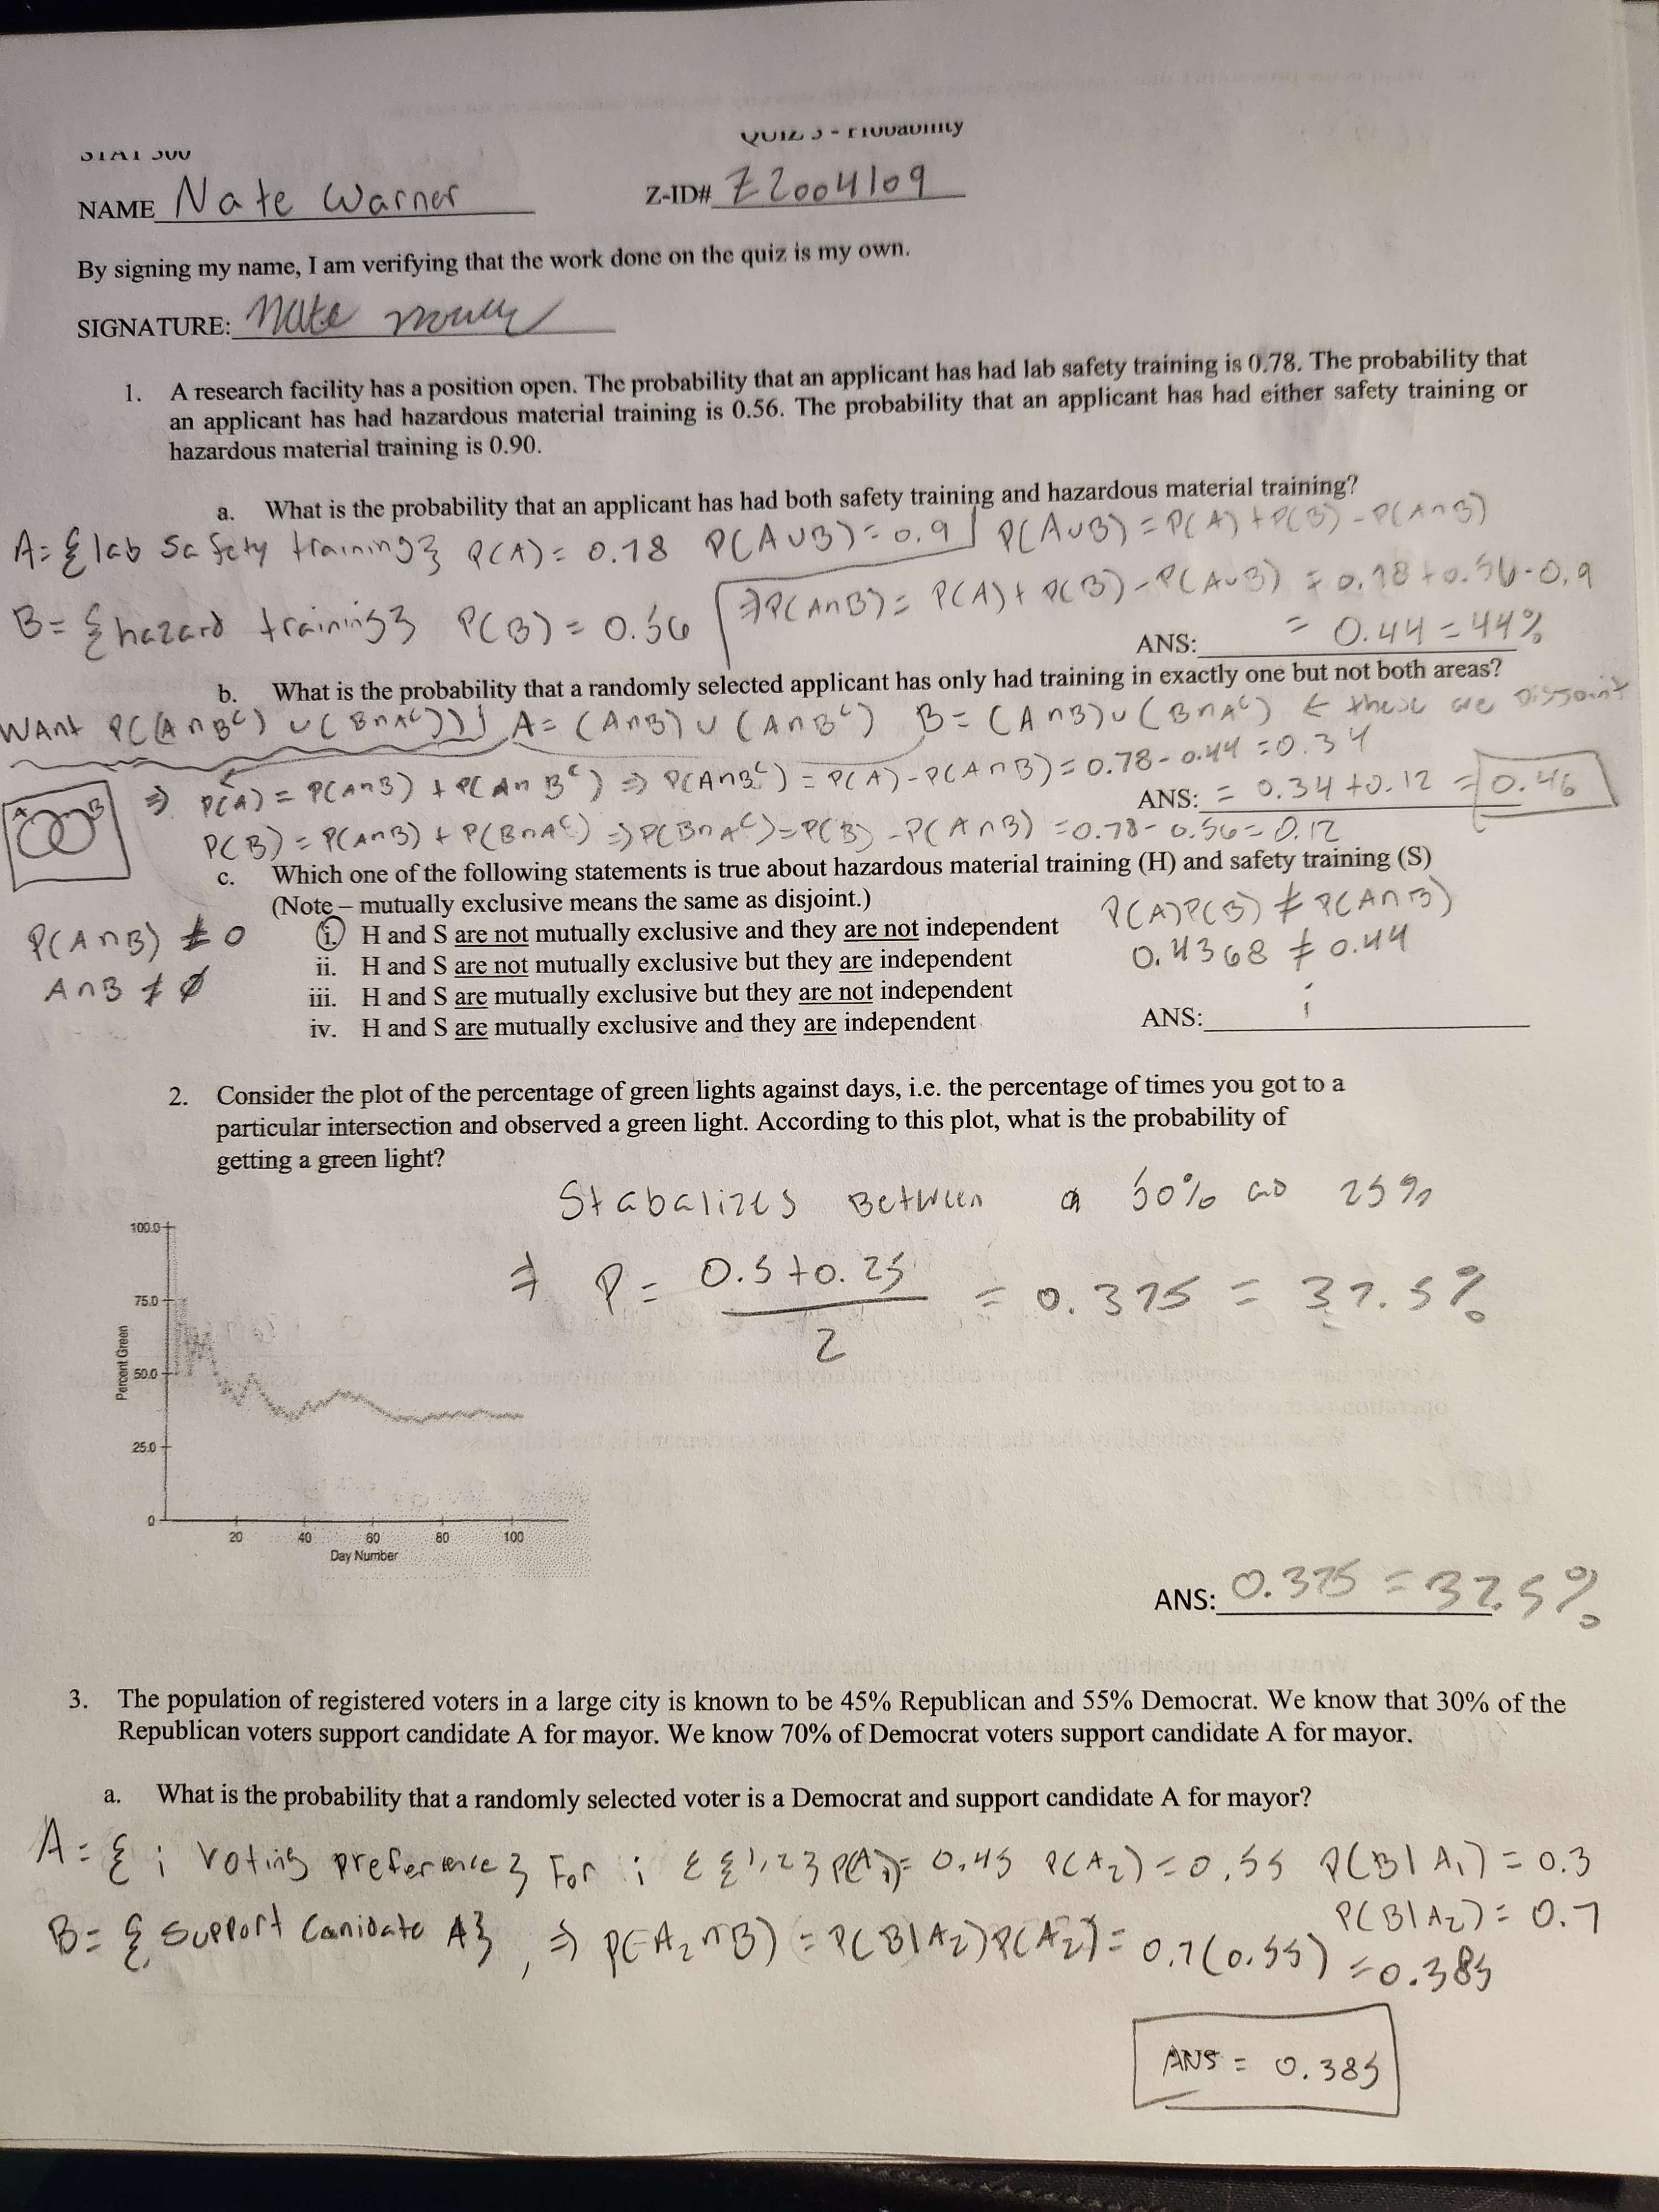 STAT 300
QUIZ 3 - Probability
NAME Nate Warner
Z-ID# Z2004109
By signing my name, I am verifying that the work done on the quiz is my own.
SIGNATURE: Nate
1. A research facility has a position open. The probability that an applicant has had lab safety training is 0.78. The probability that
an applicant has had hazardous material training is 0.56. The probability that an applicant has had either safety training or
hazardous material training is 0.90.
a. What is the probability that an applicant has had both safety training and hazardous material training?
A = {lab safety training} P(A) = 0.78 P(A∪B) = 0.9 P(A∪B) = P(A) + P(B) - P(A∩B)
B = {hazard training} P(B) = 0.56 ⇒ P(A∩B) = P(A) + P(B) - P(A∪B) = 0.78 + 0.56 - 0.9
ANS: = 0.44 = 44%
b. What is the probability that a randomly selected applicant has only had training in exactly one but not both areas?
WANT P((A∩Bᶜ) ∪ (B∩Aᶜ)) A = (A∩B) ∪ (A∩Bᶜ) B = (A∩B) ∪ (B∩Aᶜ) ← these are Disjoint
A B
⇒ P(A) = P(A∩B) + P(A∩Bᶜ) ⇒ P(A∩Bᶜ) = P(A) - P(A∩B) = 0.78 - 0.44 = 0.34
ANS: = 0.34 + 0.12 = 0.46
P(B) = P(A∩B) + P(B∩Aᶜ) ⇒ P(B∩Aᶜ) = P(B) - P(A∩B) = 0.78 - 0.56 = 0.12
c. Which one of the following statements is true about hazardous material training (H) and safety training (S)
(Note – mutually exclusive means the same as disjoint.)
P(A)P(B) ≠ P(A∩B)
P(A∩B) ≠ 0
i. H and S are not mutually exclusive and they are not independent
0.4368 ≠ 0.44
ii. H and S are not mutually exclusive but they are independent
A∩B ≠ ∅
iii. H and S are mutually exclusive but they are not independent
iv. H and S are mutually exclusive and they are independent
ANS: i
2. Consider the plot of the percentage of green lights against days, i.e. the percentage of times you got to a
particular intersection and observed a green light. According to this plot, what is the probability of
getting a green light?
Stabalizes Between 50% 25%
⇒ P = 0.5 + 0.25 / 2 = 0.375 = 37.5%
100.0
75.0
50.0
25.0
0
Percent Green
20 40 60 80 100
Day Number
ANS: 0.375 = 37.5%
3. The population of registered voters in a large city is known to be 45% Republican and 55% Democrat. We know that 30% of the
Republican voters support candidate A for mayor. We know 70% of Democrat voters support candidate A for mayor.
a. What is the probability that a randomly selected voter is a Democrat and support candidate A for mayor?
A = {i voting preference} For i ∈ {1,2} P(A₁) = 0.45 P(A₂) = 0.55 P(B|A₁) = 0.3
P(B|A₂) = 0.7
B = {Support Canidate A}, ⇒ P(A₂∩B) = P(B|A₂)P(A₂) = 0.7(0.55) = 0.385
ANS = 0.385